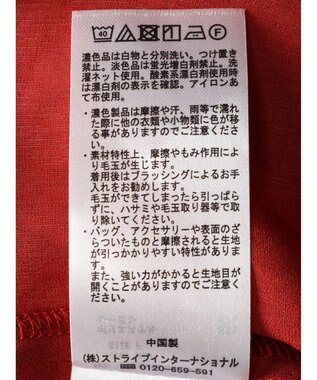 40
F
濃色品は白物と分別洗い。つけ置き
禁止。淡色品は蛍光増白剤禁止。洗
濯ネット使用。酸素系漂白剤使用時
は漂白剤の表示を確認。アイロンあ
て布使用。
・濃色製品は摩擦や汗、雨等で濡れ
た際に他の衣類や小物類に色が移
る事がありますのでご注意くださ
い。
・素材特性上、摩擦やもみ作用によ
り毛玉が生じます。
着用後はブラッシングによるお手
入れをお勧めします。
毛玉ができてしまったら引っぱら
ずに、ハサミや毛玉取り器等で取
り除いてください。
・バッグ、アクセサリーや表面のざ
らついたものと摩擦されると生地
が引っかかりやすい特性がありま
す。
また、強い力がかかると生地目が
開くことがありますのでご注意く
ださい。
中国製
(株)ストライプインターナショナル
0120-659-591